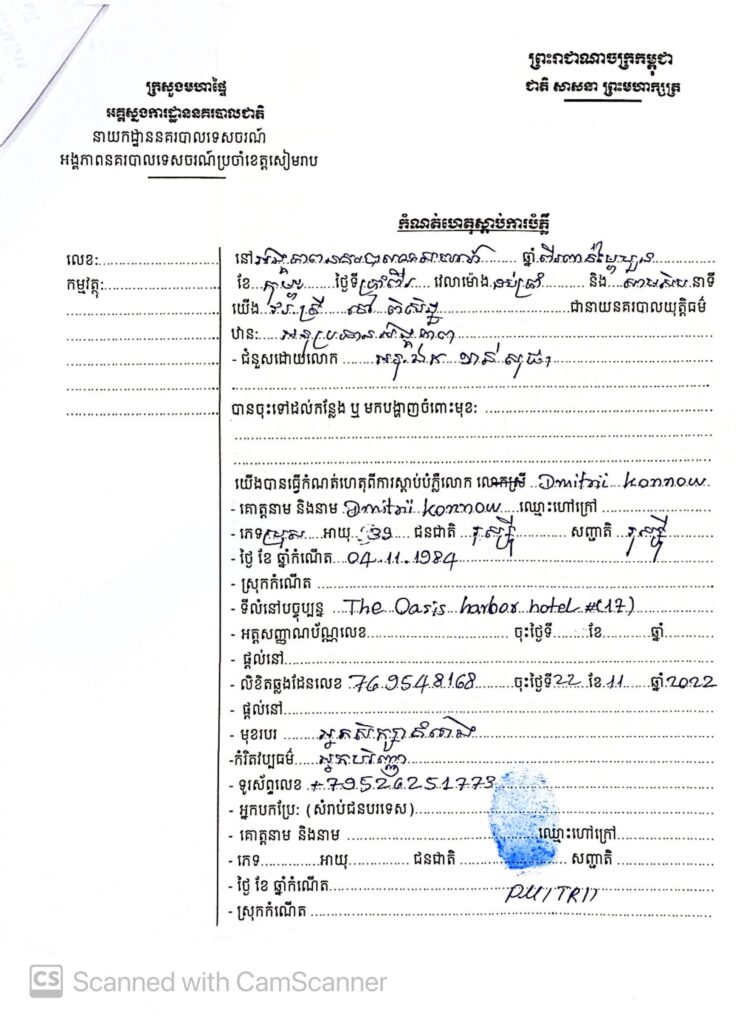 ព្រះរាជាណាចក្រកម្ពុជា
ជាតិ សាសនា ព្រះមហាក្សត្រ
ក្រសួងមហាផ្ទៃ
អគ្គស្នងការដ្ឋាននគរបាលជាតិ
នាយកដ្ឋាននគរបាលទេសចរណ៍
អង្គភាពនគរបាលទេសចរណ៍ប្រចាំខេត្តសៀមរាប
កំណត់ហេតុស្តាប់ការបំភ្លឺ
លេខ:
កម្មវត្ថុ:
នៅ អង្គភាពនគរបាលទេសចរណ៍ ឆ្នាំ ពីរពាន់ម្ភៃបួន
ខែ កុម្ភៈ ថ្ងៃទី ប្រាំពីរ វេលាម៉ោង ដប់ប្រាំ និង សាមសិប នាទី
យើង ជានាយនគរបាលយុត្តិធម៌
ឋានៈ អនុប្រធានអង្គភាព
- ជំនួសដោយលោក
បានចុះទៅដល់កន្លែង ឬ មកបង្ហាញចំពោះមុខ:
យើងបានធ្វើកំណត់ហេតុពីការស្តាប់បំភ្លឺលោក លោកស្រី Dmitrii konnow
- គោត្តនាម និងនាម Dmitrii konnow ឈ្មោះហៅក្រៅ
- ភេទ ប្រុស អាយុ 39 ជនជាតិ រុស្ស៊ី សញ្ជាតិ រុស្ស៊ី
- ថ្ងៃ ខែ ឆ្នាំកំណើត 04.11.1984
- ស្រុកកំណើត
- ទីលំនៅបច្ចុប្បន្ន The Oasis harbor hotel #(17)
- អត្តសញ្ញាណប័ណ្ណលេខ ចុះថ្ងៃទី ខែ ឆ្នាំ
- ផ្តល់នៅ
- លិខិតឆ្លងដែនលេខ 769548168 ចុះថ្ងៃទី 22 ខែ 11 ឆ្នាំ 2022
- ផ្តល់នៅ
- មុខរបរ
-កំរិតវប្បធម៌
- ទូរស័ព្ទលេខ +79526251773
- អ្នកបកប្រែ: (សំរាប់ជនបរទេស)
- គោត្តនាម និងនាម ឈ្មោះហៅក្រៅ
- ភេទ អាយុ ជនជាតិ សញ្ជាតិ
- ថ្ងៃ ខែ ឆ្នាំកំណើត
DMITRII
- ស្រុកកំណើត
CS Scanned with CamScanner